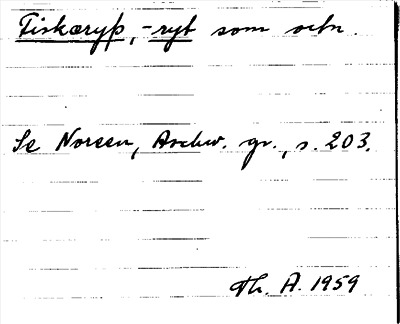 Fiskaryþ, -ryt som ortn.
Se Noreen, Aschw. gr., s. 203.
Th. A. 1959